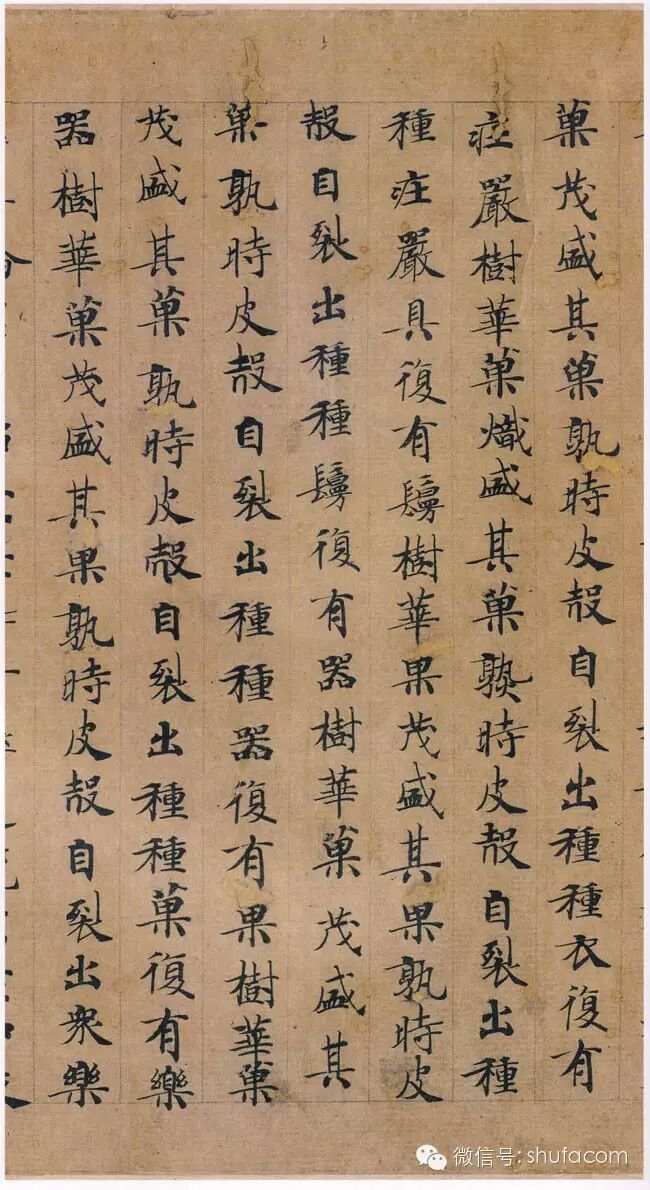 菓茂盛其菓孰時皮㲉自裂出種種衣復有
庄嚴樹華菓熾盛其菓孰時皮㲉自裂出種
種庄嚴具復有鬘樹華果茂盛其果孰時皮
㲉自裂出種種鬘復有器樹華菓茂盛其
菓孰時皮㲉自裂出種種器復有果樹華菓
茂盛其菓孰時皮㲉自裂出種種菓復有樂
器樹華菓茂盛其果孰時皮㲉自裂出衆樂
微信号: shufacom